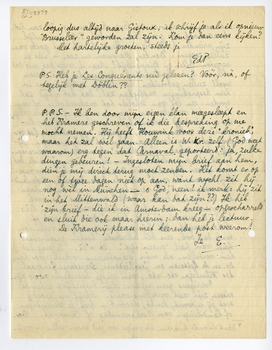 loopig dus altijd naar Gistoux, ik schrijf je als ik opnieuw
Brusselaar geworden zal zijn. Kom je dan eens kijken?
Met hartelijke groeten, steeds je
EdP
P.S. Heb je Les Conquérants nu gelezen? Vóór, na, of
tegelijk met Döblin??
P.P.S. Ik ben door mijn eigen élan meegesleept en
heb Kramers geschreven of ik die bespreking op me
mocht nemen. Hij heeft Houwink voor deze "kroniek",
maar het zal wel gaan. Alleen is hr Kr. zelf (God weet
waarom) erg tegen dat Carnaval geporteerd. Ja, zulke
dingen gebeuren! - Ingesloten mijn brief aan hem,
dien je mij direct terug moet zenden. Het komt er op
een of twee dagen niet op aan, want mijnh. zit hij
nog wel in München - o God, neen! ik merk: hij zit
in het (waar kan dat zijn??) Ik heb
zijn brief - die ik in Amsterdam kreeg -
en sluit die ook maar hierin; dan heb je lectuur.
De Kramerij please met keerende post weerom!
Je E.